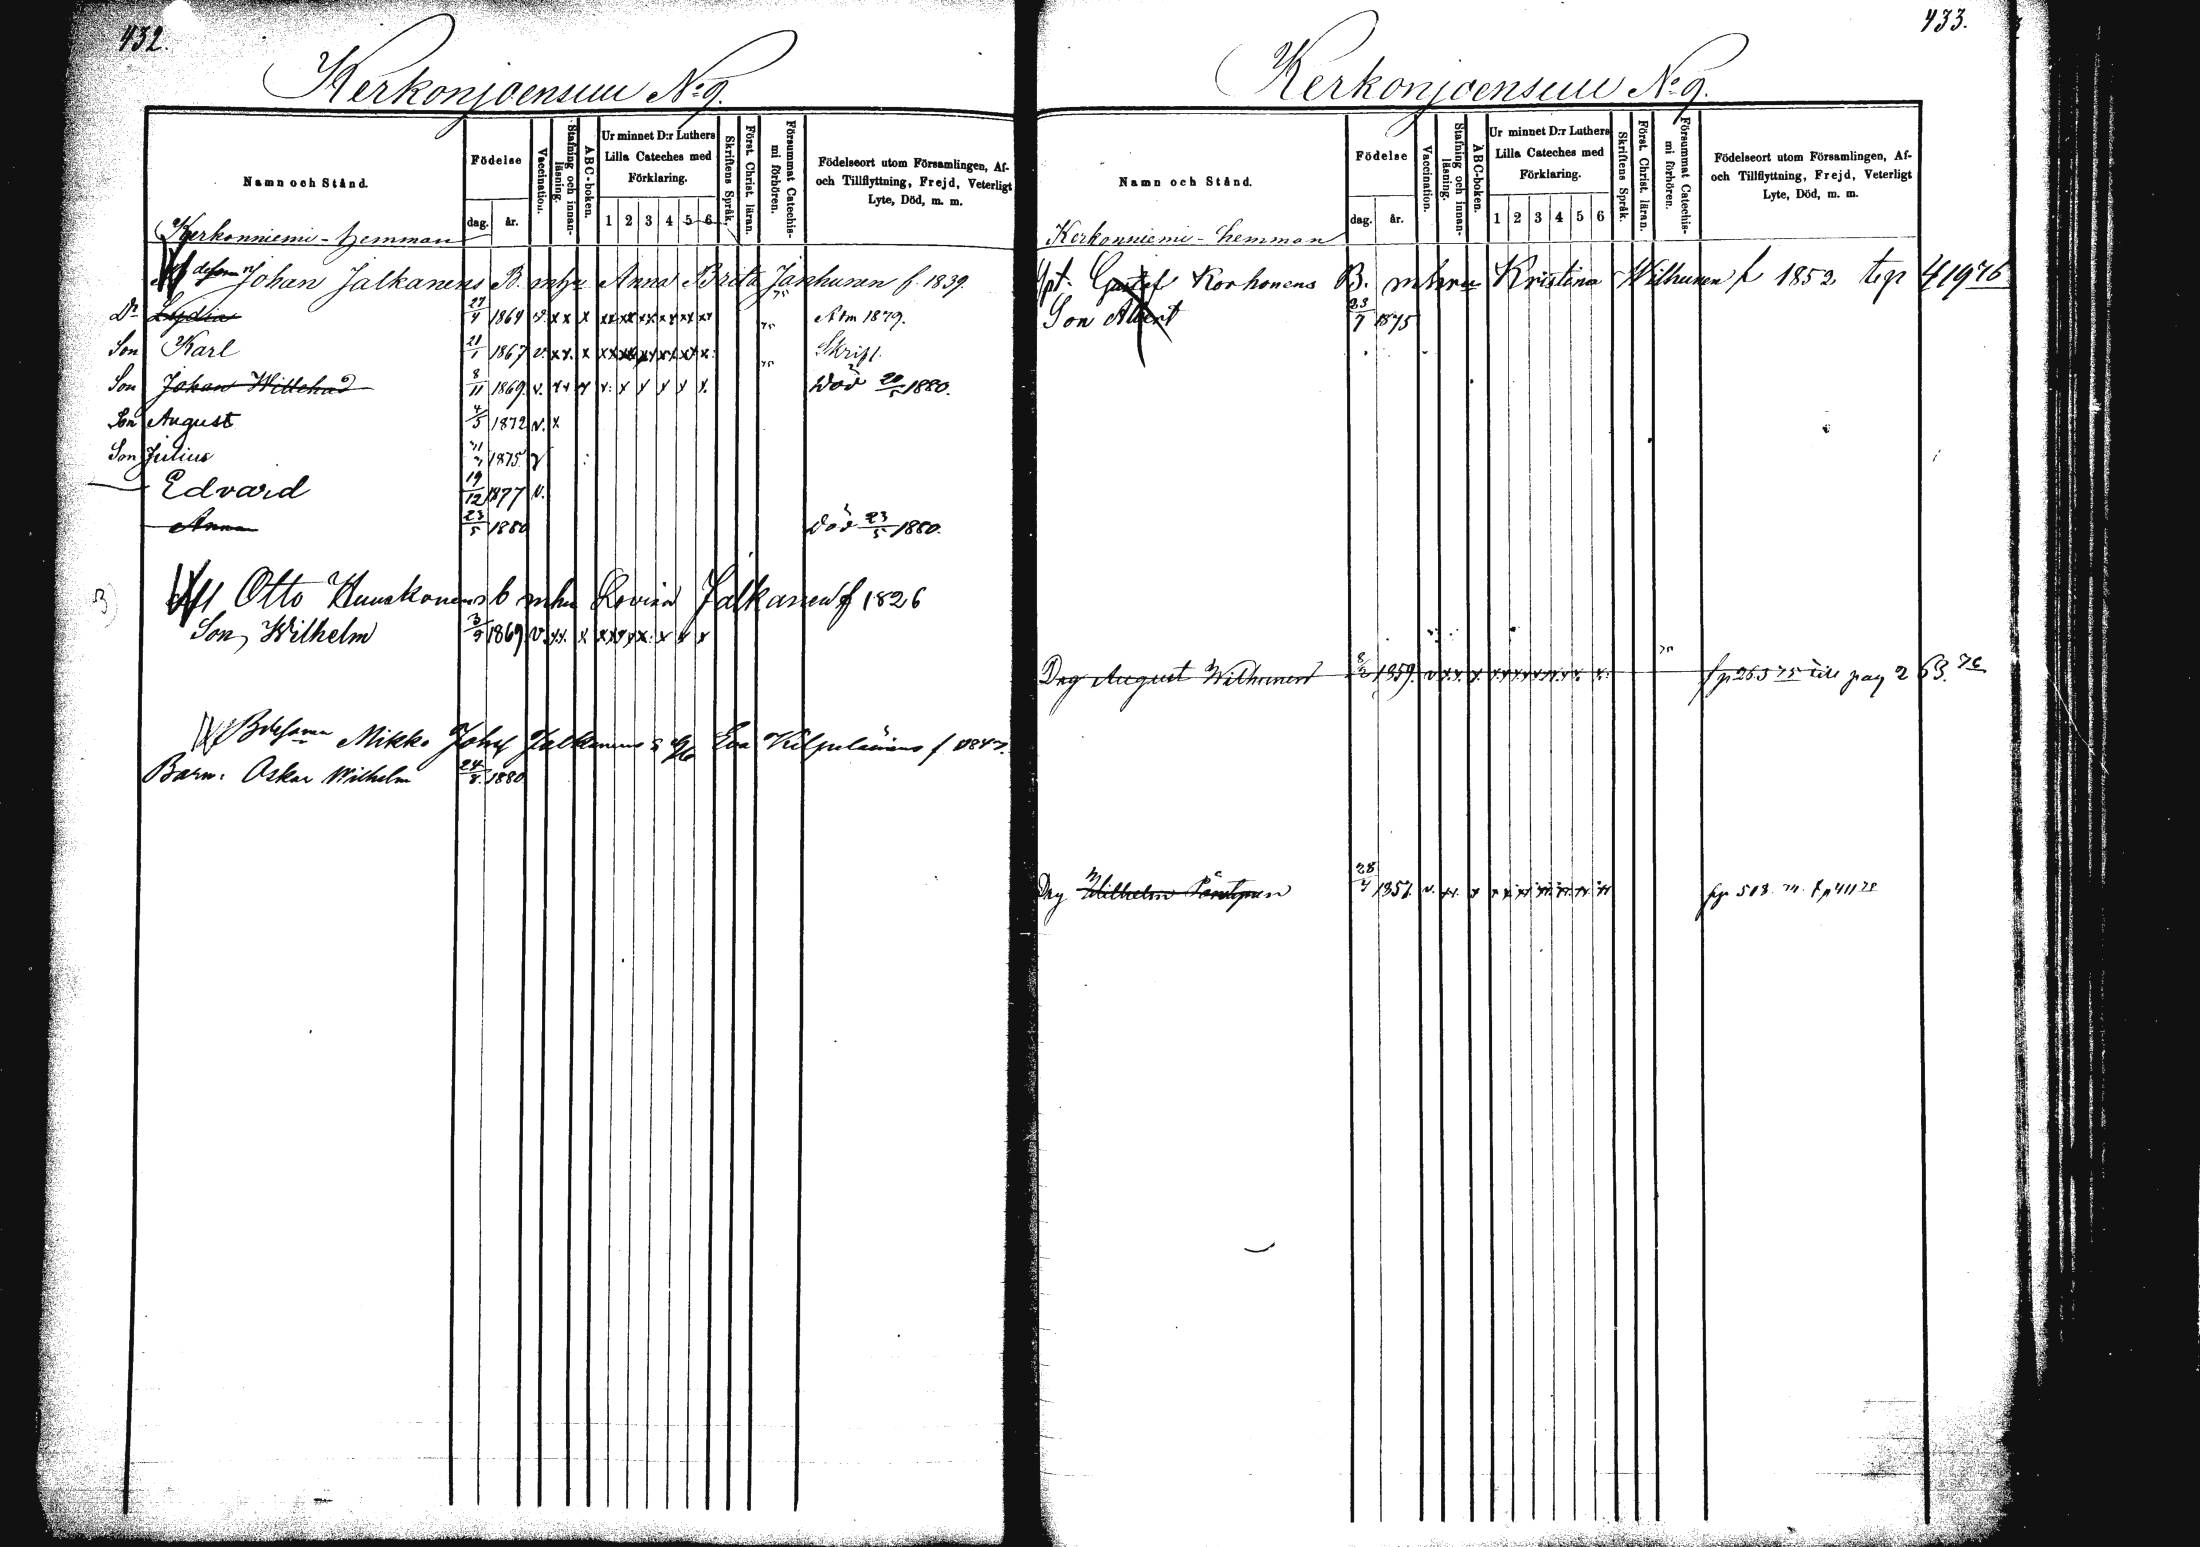 432.
Kerkonjoensuu No 9.
Namn och Stånd.
Födelse
dag.
år.
Vaccination.
Stafning och innan-
läsning.
ABC-boken.
Ur minnet D:r Luthers
Lilla Cateches med
Förklaring.
1 2 3 4 5 6
Skriftens Språk.
Först. Christ. läran.
Försummat Catechis-
mi förhören.
Födelseort utom Församlingen, Af-
och Tillflyttning, Frejd, Veterligt
Lyte, Död, m. m.
Kerkonniemi-hemman
Johan Jalkanens B. mhu Anna Brita Janhunen f. 1839.
Dr Lydia 27/4 1864 v. x x x xx xx xx xx xx xx Adm 1879.
Son Karl 21/1 1867 v. x x. x Skrift.
Son Johan Willehad 8/11 1869. v. x x x x x x x x x. Död 20/5 1880.
Son August 4/5 1872 v. x
Son Julius 1875 v
Edvard 19/12 1877 v.
Anna 23/5 1880 Död 23/5 1880.
Otto Kuuskonens b mhu Lovisa Jalkanen f 1826
Son, Wilhelm 3/9 1869 v. x x. x
Mikko Johs Jalkanens Eva Kilpeläinens f 1847.
Barn: Oskar Wilhelm 24/8 1880
433.
Kerkonjoensuu No 9.
Namn och Stånd.
Födelse
dag.
år.
Vaccination.
Stafning och innan-
läsning.
ABC-boken.
Ur minnet D:r Luthers
Lilla Cateches med
Förklaring.
1 2 3 4 5 6
Skriftens Språk.
Först. Christ. läran.
Försummat Catechis-
mi förhören.
Födelseort utom Församlingen, Af-
och Tillflyttning, Frejd, Veterligt
Lyte, Död, m. m.
Kerkonniemi-hemman
Gustaf Korhonens B. mhru Kristina Wilhunen f 1852 tpg 419 76
Son Albert 23/7 1875
Drg August Wilhunen 8/2 1859. fp 265 75 till pag 263. 76
Drg Wilhelm 28/4 1857. v. fp 513.